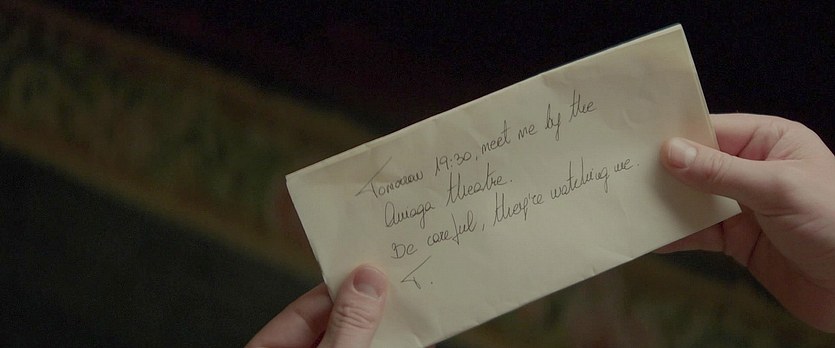 Tomorrow 19:30, meet me by the
Arriaga theatre.
Be careful, they're watching me.
T.